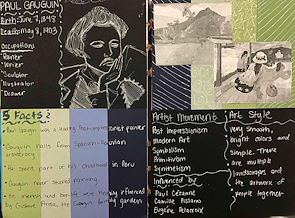 PAUL GAUGUIN
Birth: June 7, 1848
Death: May 8, 1903
Occupations
Painter
Writer
Sculptor
Illustrator
Drawer
5 Facts
Paul Gauguin was a leading Post-Impressionist painter
Gauguin hails from Spanish-Peruvian
aristocracy
He spent part of his childhood in Peru
Gauguin never studied painting
his mentor and
by Gustave Arosa, the Gauguin family
Artist Movement
Post Impressionism
Modern Art
Symbolism
Primitivism
Synthetism
Influenced by
Paul Cézanne
Camille Pissarro
Eugène Delacroix
Art Style
Very smooth,
bright colors and
simple. There
are multiple
landscapes and
the artwork of
people together